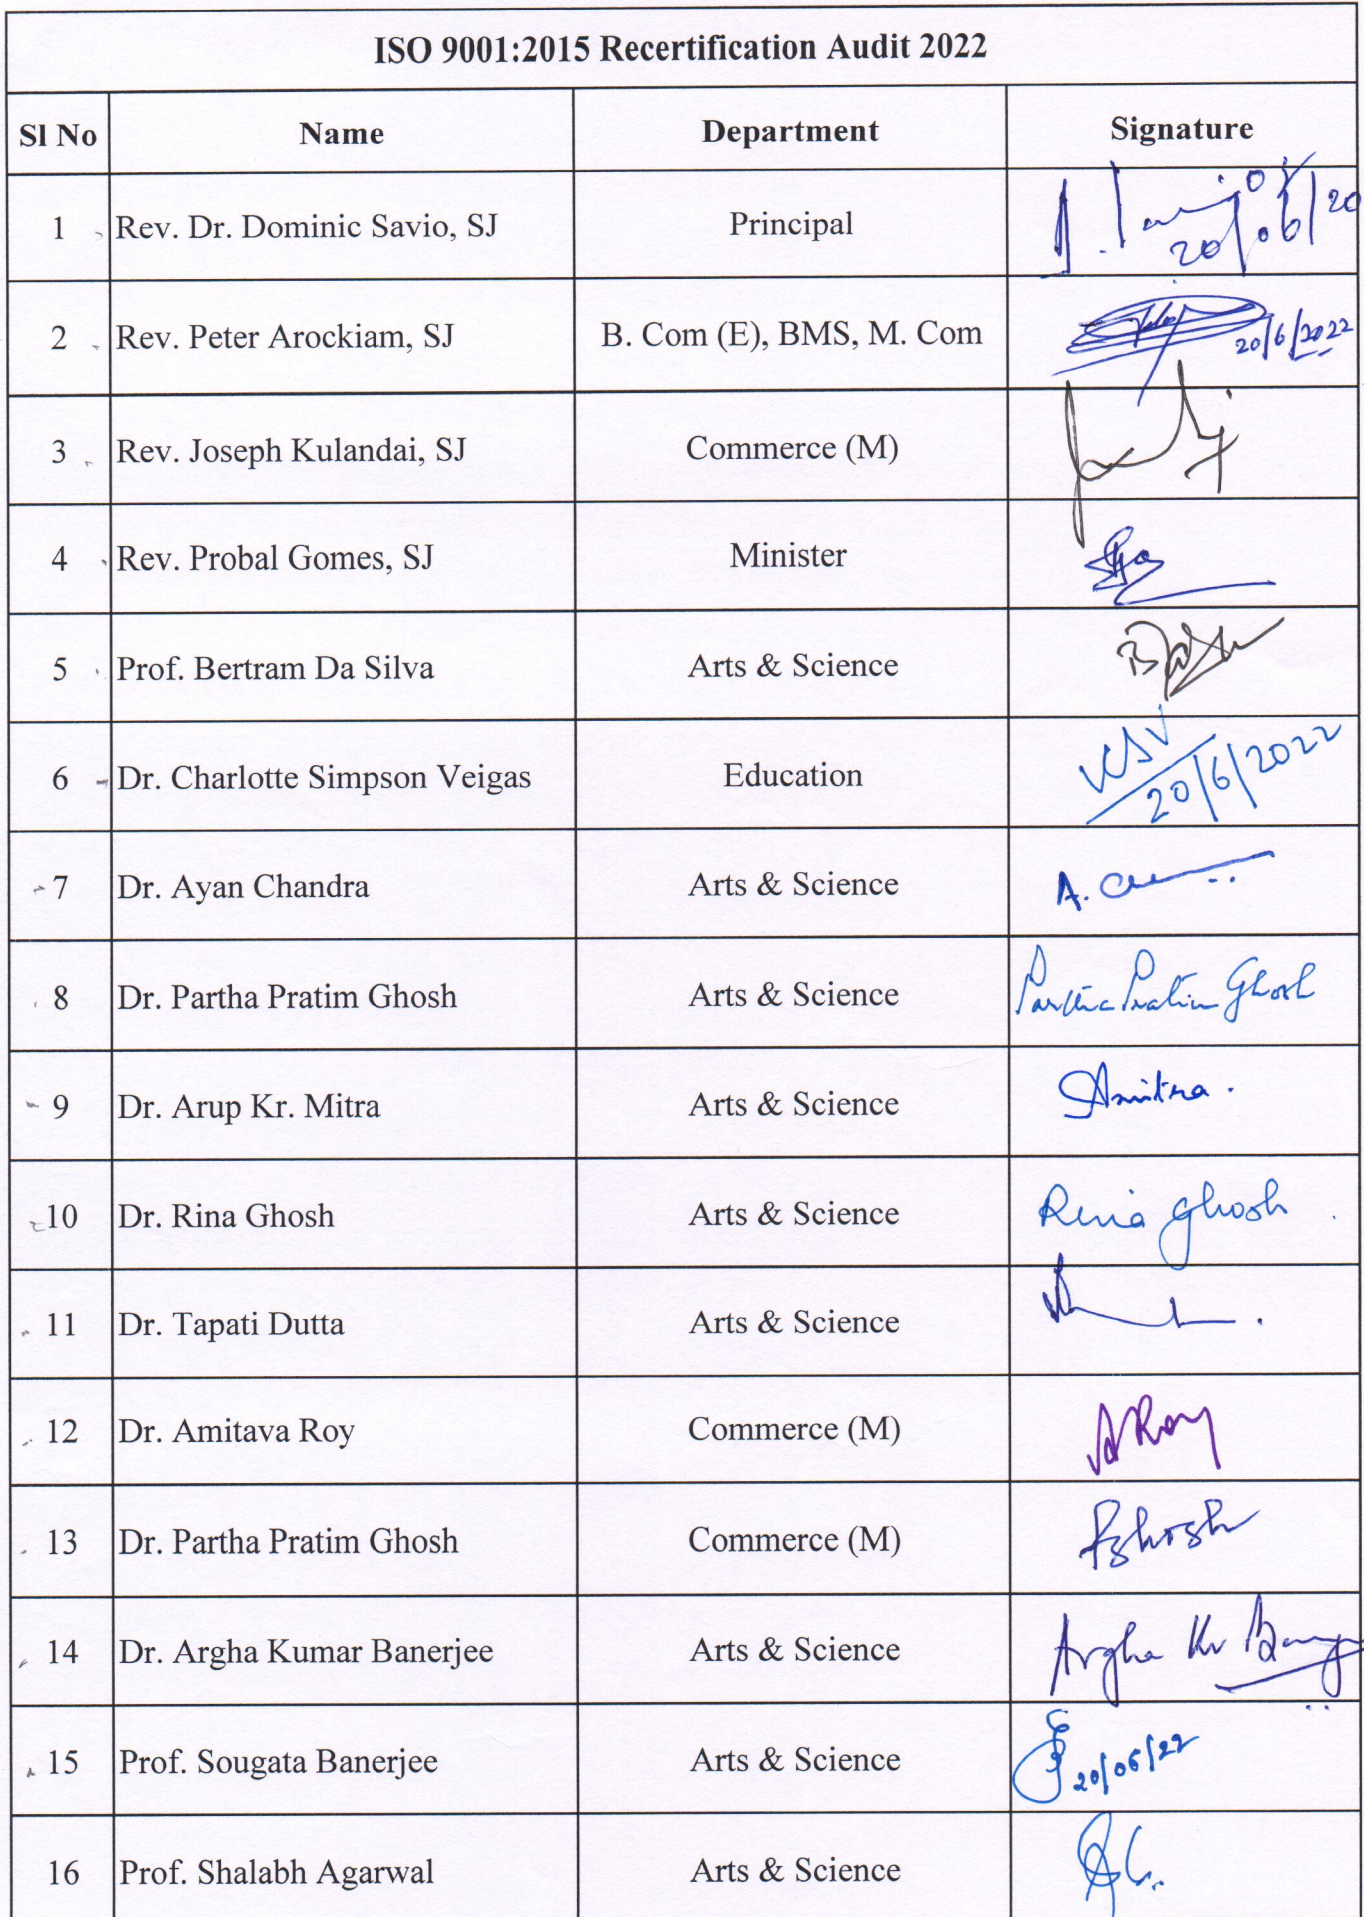 ISO 9001:2015 Recertification Audit 2022
Sl No Name Department Signature
1 Rev. Dr. Dominic Savio, SJ Principal 20/06/20
2 Rev. Peter Arockiam, SJ B. Com (E), BMS, M. Com 20/6/2022
3 Rev. Joseph Kulandai, SJ Commerce (M)
4 Rev. Probal Gomes, SJ Minister
5 Prof. Bertram Da Silva Arts & Science
6 Dr. Charlotte Simpson Veigas Education 20/6/2022
7 Dr. Ayan Chandra Arts & Science A.
8 Dr. Partha Pratim Ghosh Arts & Science Partha Pratim Ghosh
9 Dr. Arup Kr. Mitra Arts & Science Amitra.
10 Dr. Rina Ghosh Arts & Science Rina Ghosh
11 Dr. Tapati Dutta Arts & Science
12 Dr. Amitava Roy Commerce (M) ARoy
13 Dr. Partha Pratim Ghosh Commerce (M) PGhosh
14 Dr. Argha Kumar Banerjee Arts & Science Argha Kr
15 Prof. Sougata Banerjee Arts & Science 20/06/22
16 Prof. Shalabh Agarwal Arts & Science